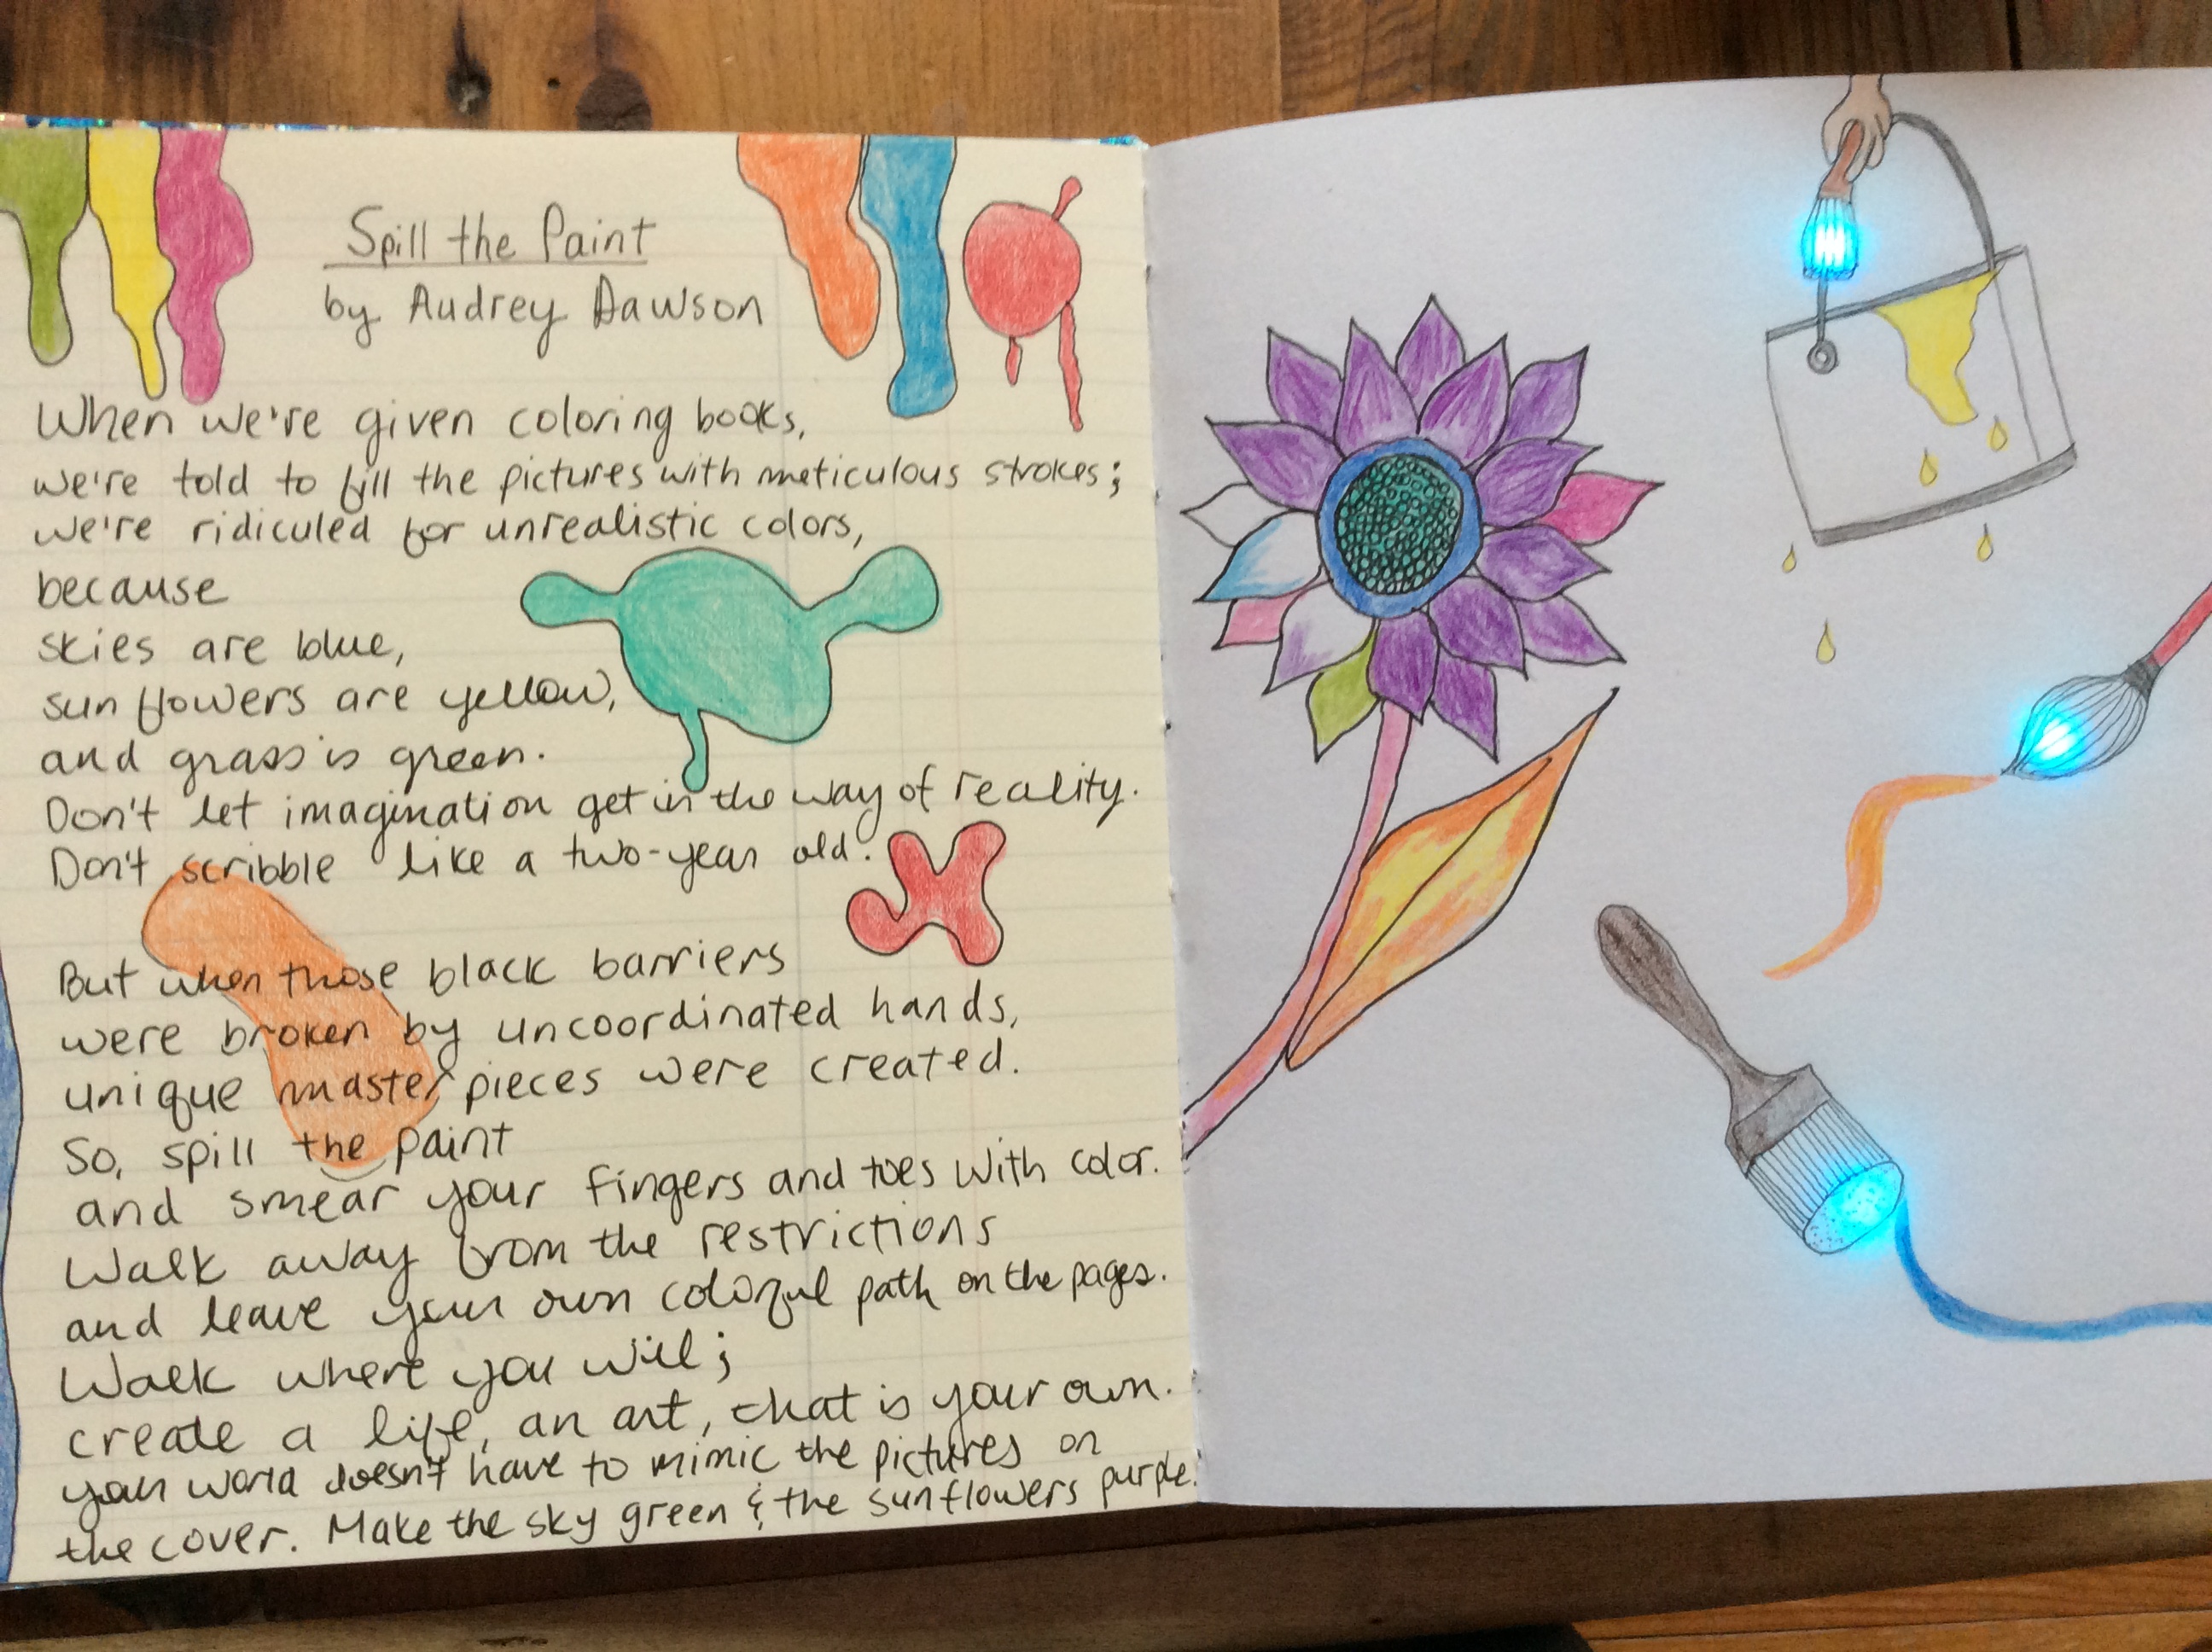 Spill the Paint
by Audrey Dawson
When we're given coloring books,
we're told to fill the pictures with meticulous strokes;
we're ridiculed for unrealistic colors,
because
skies are blue,
sunflowers are yellow,
and grass is green.
Don't let imagination get in the way of reality.
Don't scribble like a two-year old.
But when those black barriers
were broken by uncoordinated hands,
unique masterpieces were created.
So, spill the paint
and smear your fingers and toes with color.
Walk away from the restrictions
and leave your own colorful path on the pages.
Walk where you will;
create a life, an art, that is your own.
your world doesn't have to mimic the pictures on
the cover. Make the sky green & the sunflowers purple.